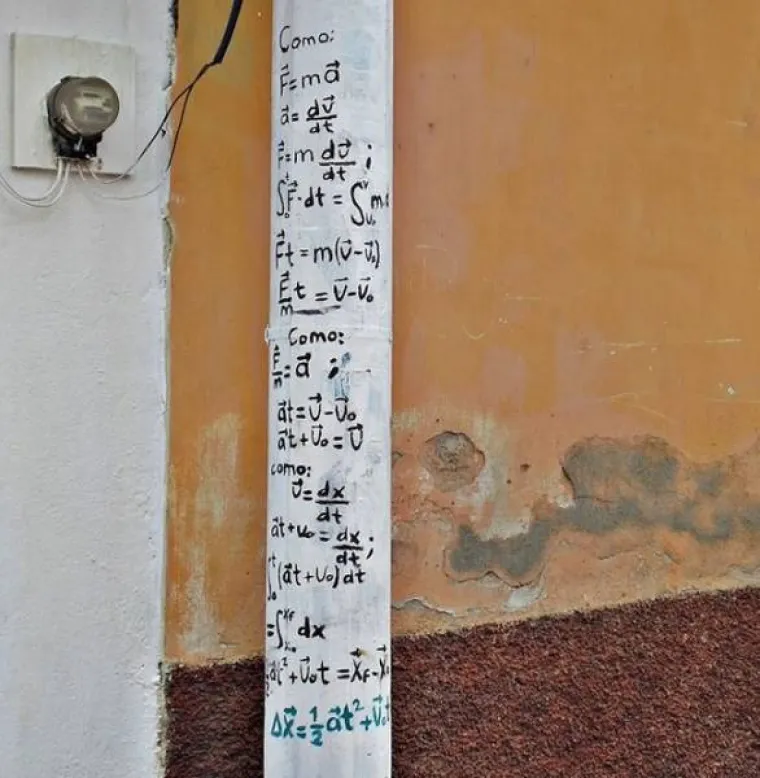 Como:
F⃗=ma⃗
a⃗=dv⃗/dt
F⃗=m dv⃗/dt ;
∫₀ᵗ F⃗·dt = ∫ᵥ₀ᵛ m
F⃗t = m(v⃗-v⃗₀)
F⃗/m t = v⃗-v⃗₀
Como:
F⃗/m = a⃗ ;
a⃗t = v⃗-v⃗₀
a⃗t+v⃗₀ = v⃗
como:
v⃗=dx/dt
a⃗t+v₀ = dx/dt ;
∫₀ᵗ (a⃗t+v₀)dt
=∫ₓ₀ˣᶠ dx
½a⃗t²+v⃗₀t = x⃗F-x⃗₀
Δx⃗=½a⃗t²+v⃗₀t